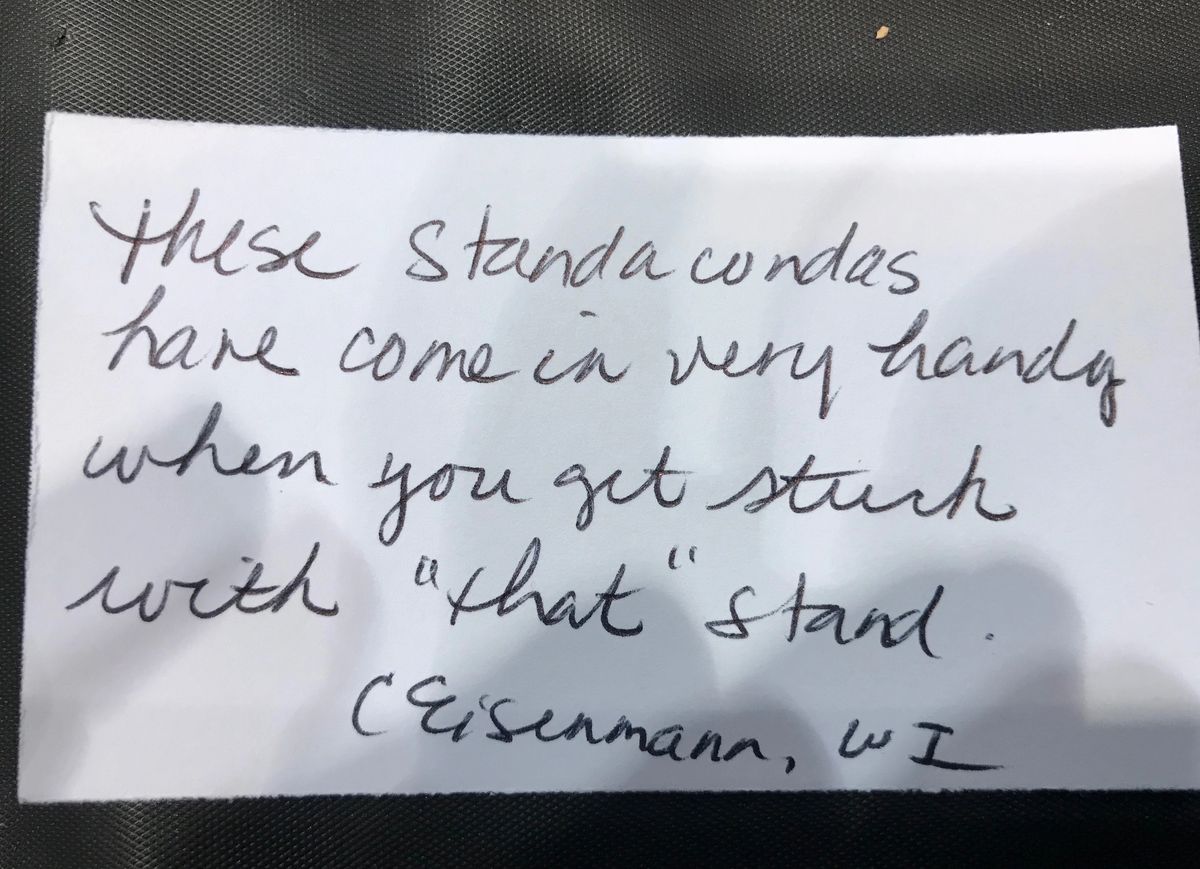 These Standacondas
have come in very handy
when you get stuck
with "that" stand.
C Eisenmann, WI